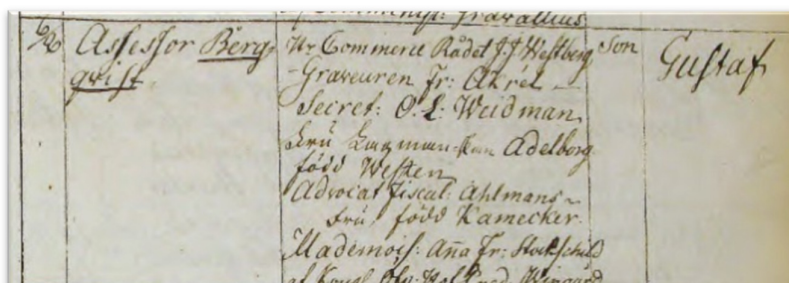 Gravallius
Assessor Berg-
qvist
Hr Commerce Rådet J J Westberg
Graveuren Fr: Akrél
Secret: O. L. Weidman
Fru Lagman Adelborg
född Westen
Advocat Fiscal: Ahlmans
Fru född Kamecker
Mademois: Aña Fr:
af Kongl
Son
Gustaf